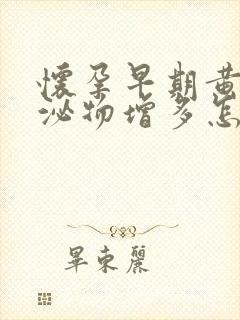 懷孕早期黃
泌物增多怎
畢東麗